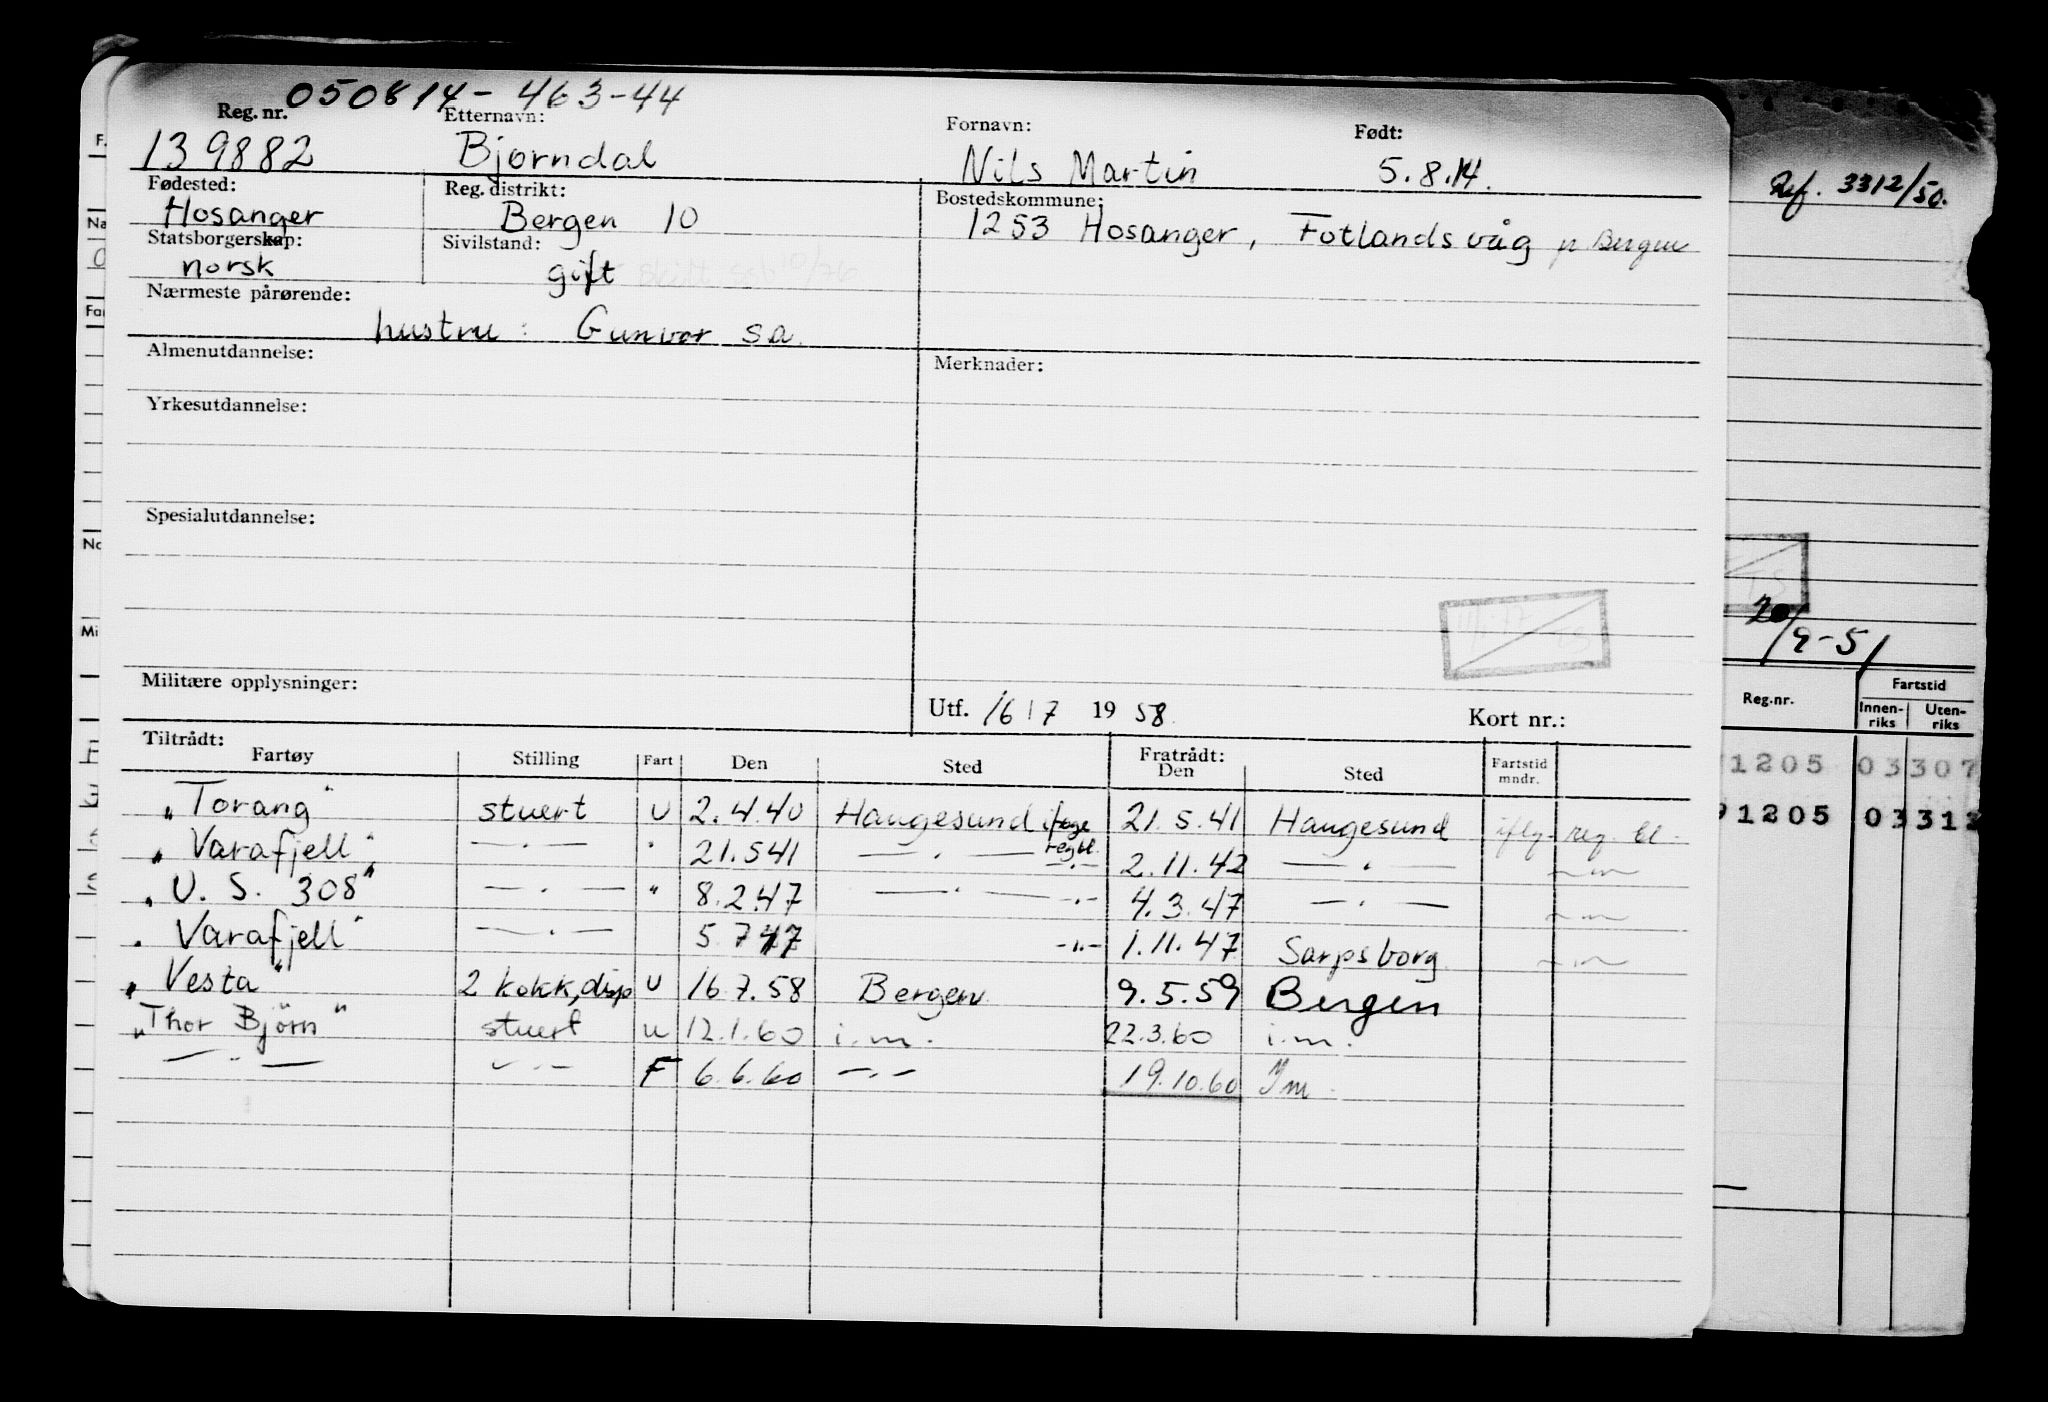 050814-463-44
Reg. nr. Etternavn: Fornavn: Født:
139882 Bjørndal Nils Martin 5.8.14.
Fødested: Reg. distrikt: Bostedskommune:
Hosanger Bergen 10 1253 Hosanger, Fotlandsvåg pr Bergen
Statsborgerskap: Sivilstand:
norsk gift
Nærmeste pårørende:
hustru: Gunvor sa.
Almenutdannelse: Merknader:
Yrkesutdannelse:
Spesialutdannelse:
Militære opplysninger:
Utf. 16/7 1958. Kort nr.:
Tiltrådt: Fratrådt:
Fartøy Stilling Fart Den Sted Den Sted Fartstid mndr.
"Torang" stuert U 2.4.40 Haugesund ifølge regbl. 21.5.41 Haugesund iflg. reg. bl.
"Varafjell" —"— " 21.541 —"— —"— 2.11.42 —"— —"—
"U.S. 308" —"— " 8.247 —"— —"— 4.3.47 —"— —"—
"Varafjell" —"— 5.747 —"— 1.11.47 Sarpsborg —"—
"Vesta" 2 kokk, disp U 16.7.58 Bergen 9.5.59 Bergen
"Thor Björn" stuert u 12.1.60 i.m. 22.3.60 i.m.
—"— —"— F 6.6.60 —"— 19.10.60 Im
Ref. 3312/50.
20/9-51
Reg.nr. Fartstid
Innenriks Utenriks
1205 03307
91205 03312